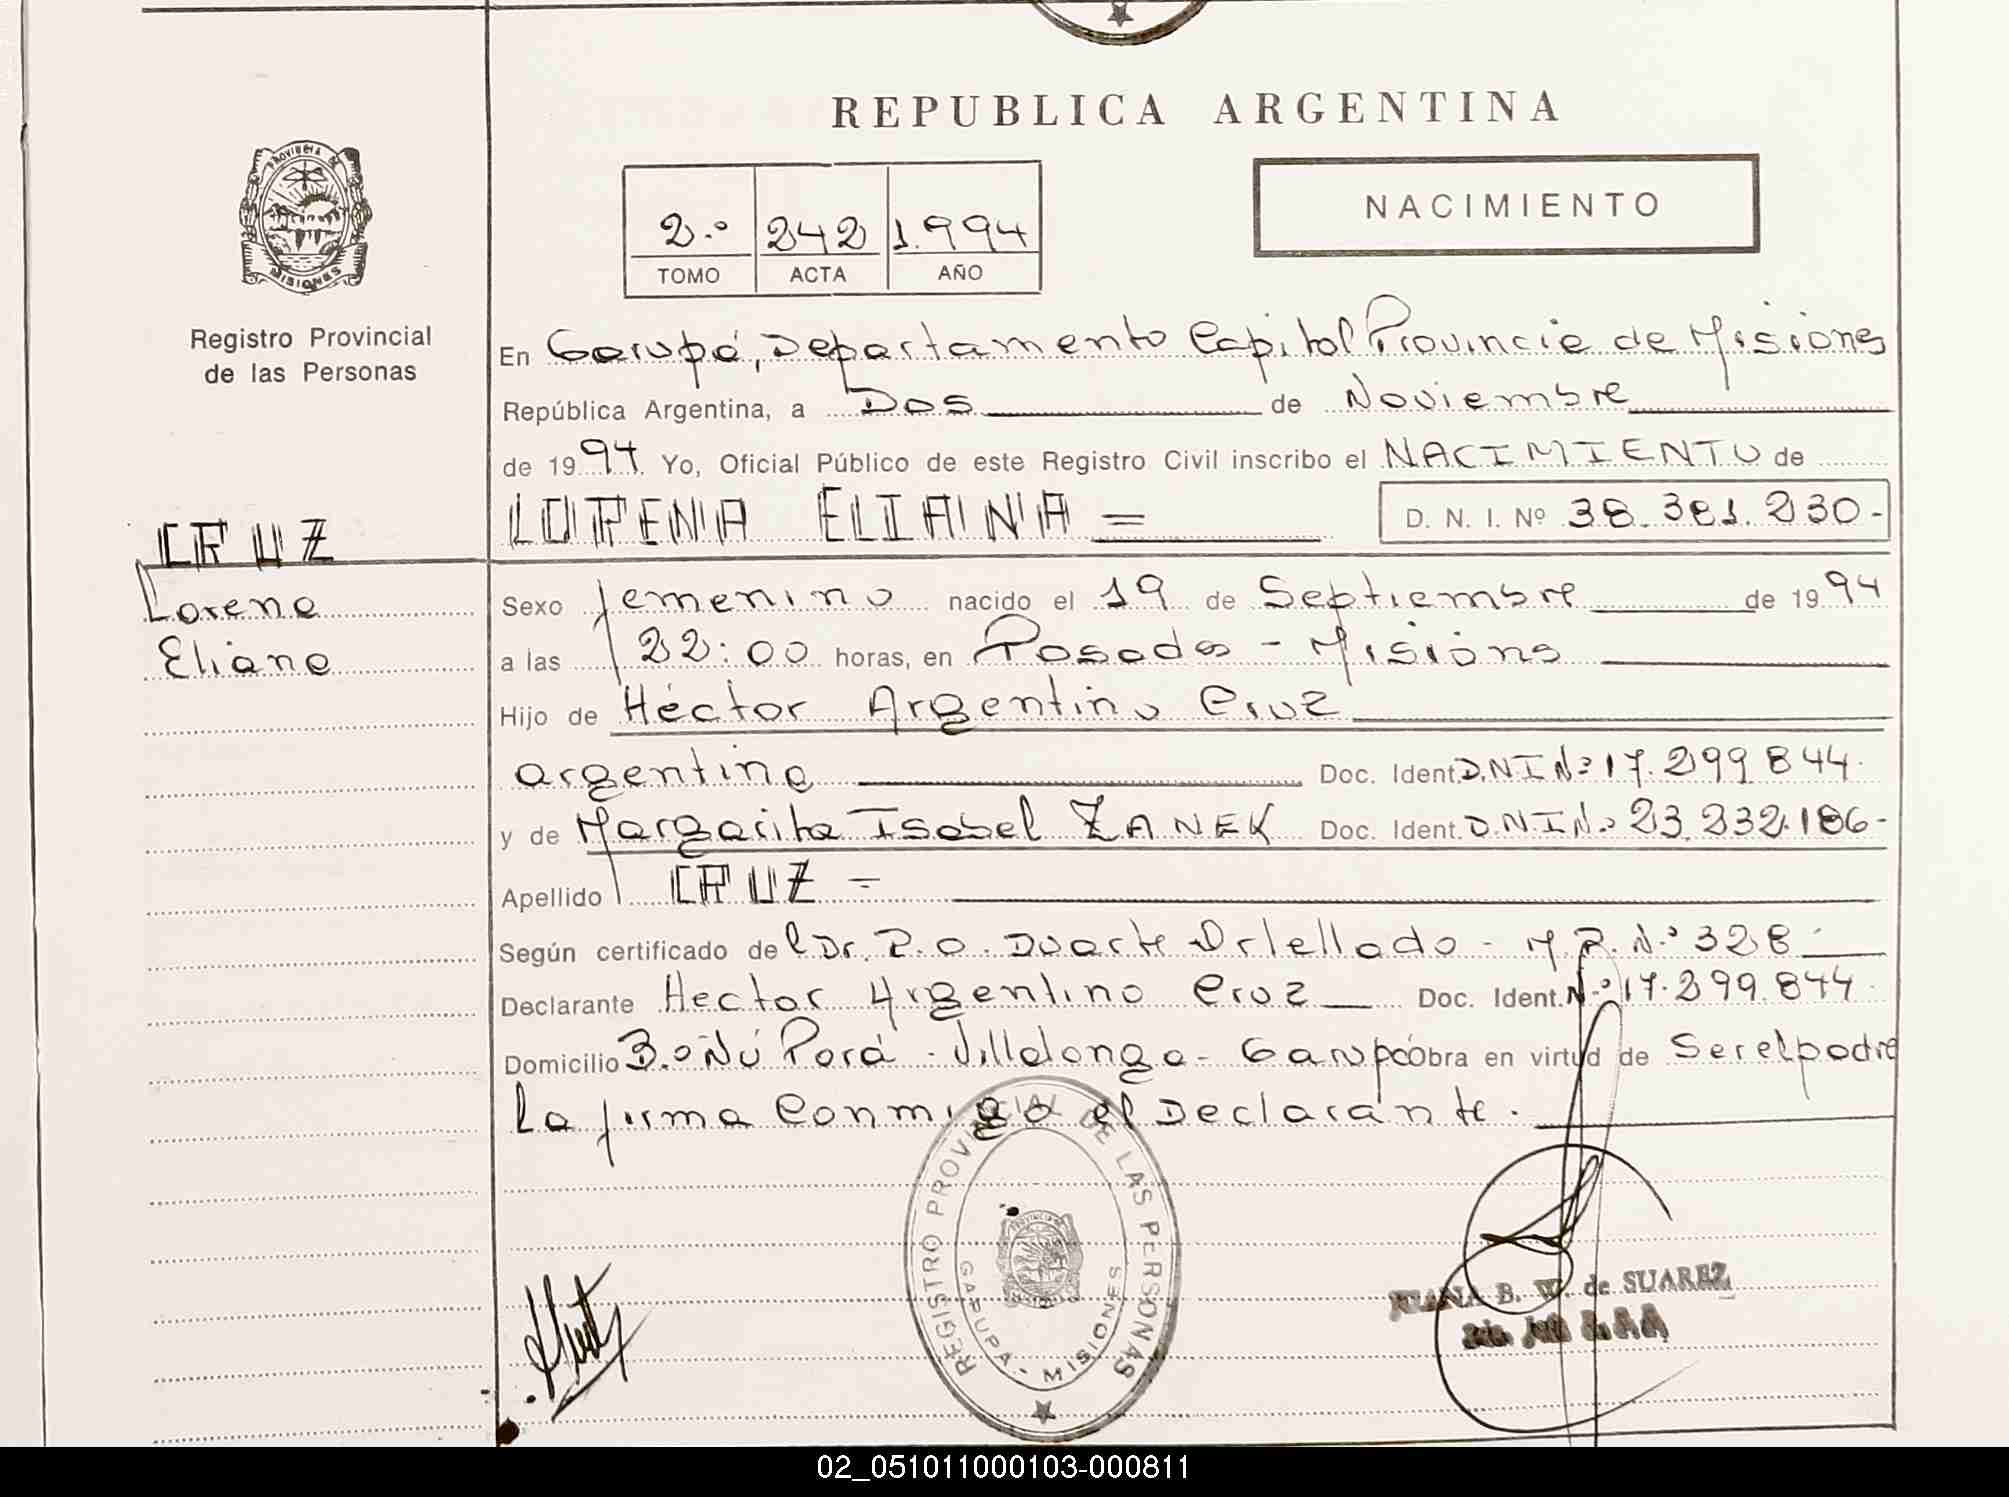 REPUBLICA ARGENTINA
PROVINCIA DE
MISIONES
Registro Provincial
de las Personas
2.º 242 1.994
TOMO ACTA AÑO
NACIMIENTO
En Garupá, Departamento Capital Provincia de Misiones
República Argentina, a Dos de Noviembre
de 1994 Yo, Oficial Público de este Registro Civil inscribo el NACIMIENTO de
CRUZ
Lorena
Eliana
LORENA ELIANA =
D. N. I. Nº 38.381.230-
Sexo femenino nacido el 19 de Septiembre de 1994
a las 22:00 horas, en Posadas - Misions
Hijo de Héctor Argentino Cruz
argentino Doc. Ident. D.N.I Nº 17.299.844.
y de Margarita Isabel ZANEK Doc. Ident. D.N.I N.º 23.232.186-
Apellido CRUZ =
Según certificado del Dr. R.O. Duarte Orlellado - M.P. N.º 328-
Declarante Hector Argentino Cruz Doc. Ident. N.º 17.299.844.
Domicilio B.º Ñú Porá - Villalonga - Garupá Obra en virtud de Ser el padre
La firma Conmigo el Declarante.
REGISTRO PROVINCIAL DE LAS PERSONAS
GARUPA - MISIONES
B. W. de SUAREZ
02_051011000103-000811